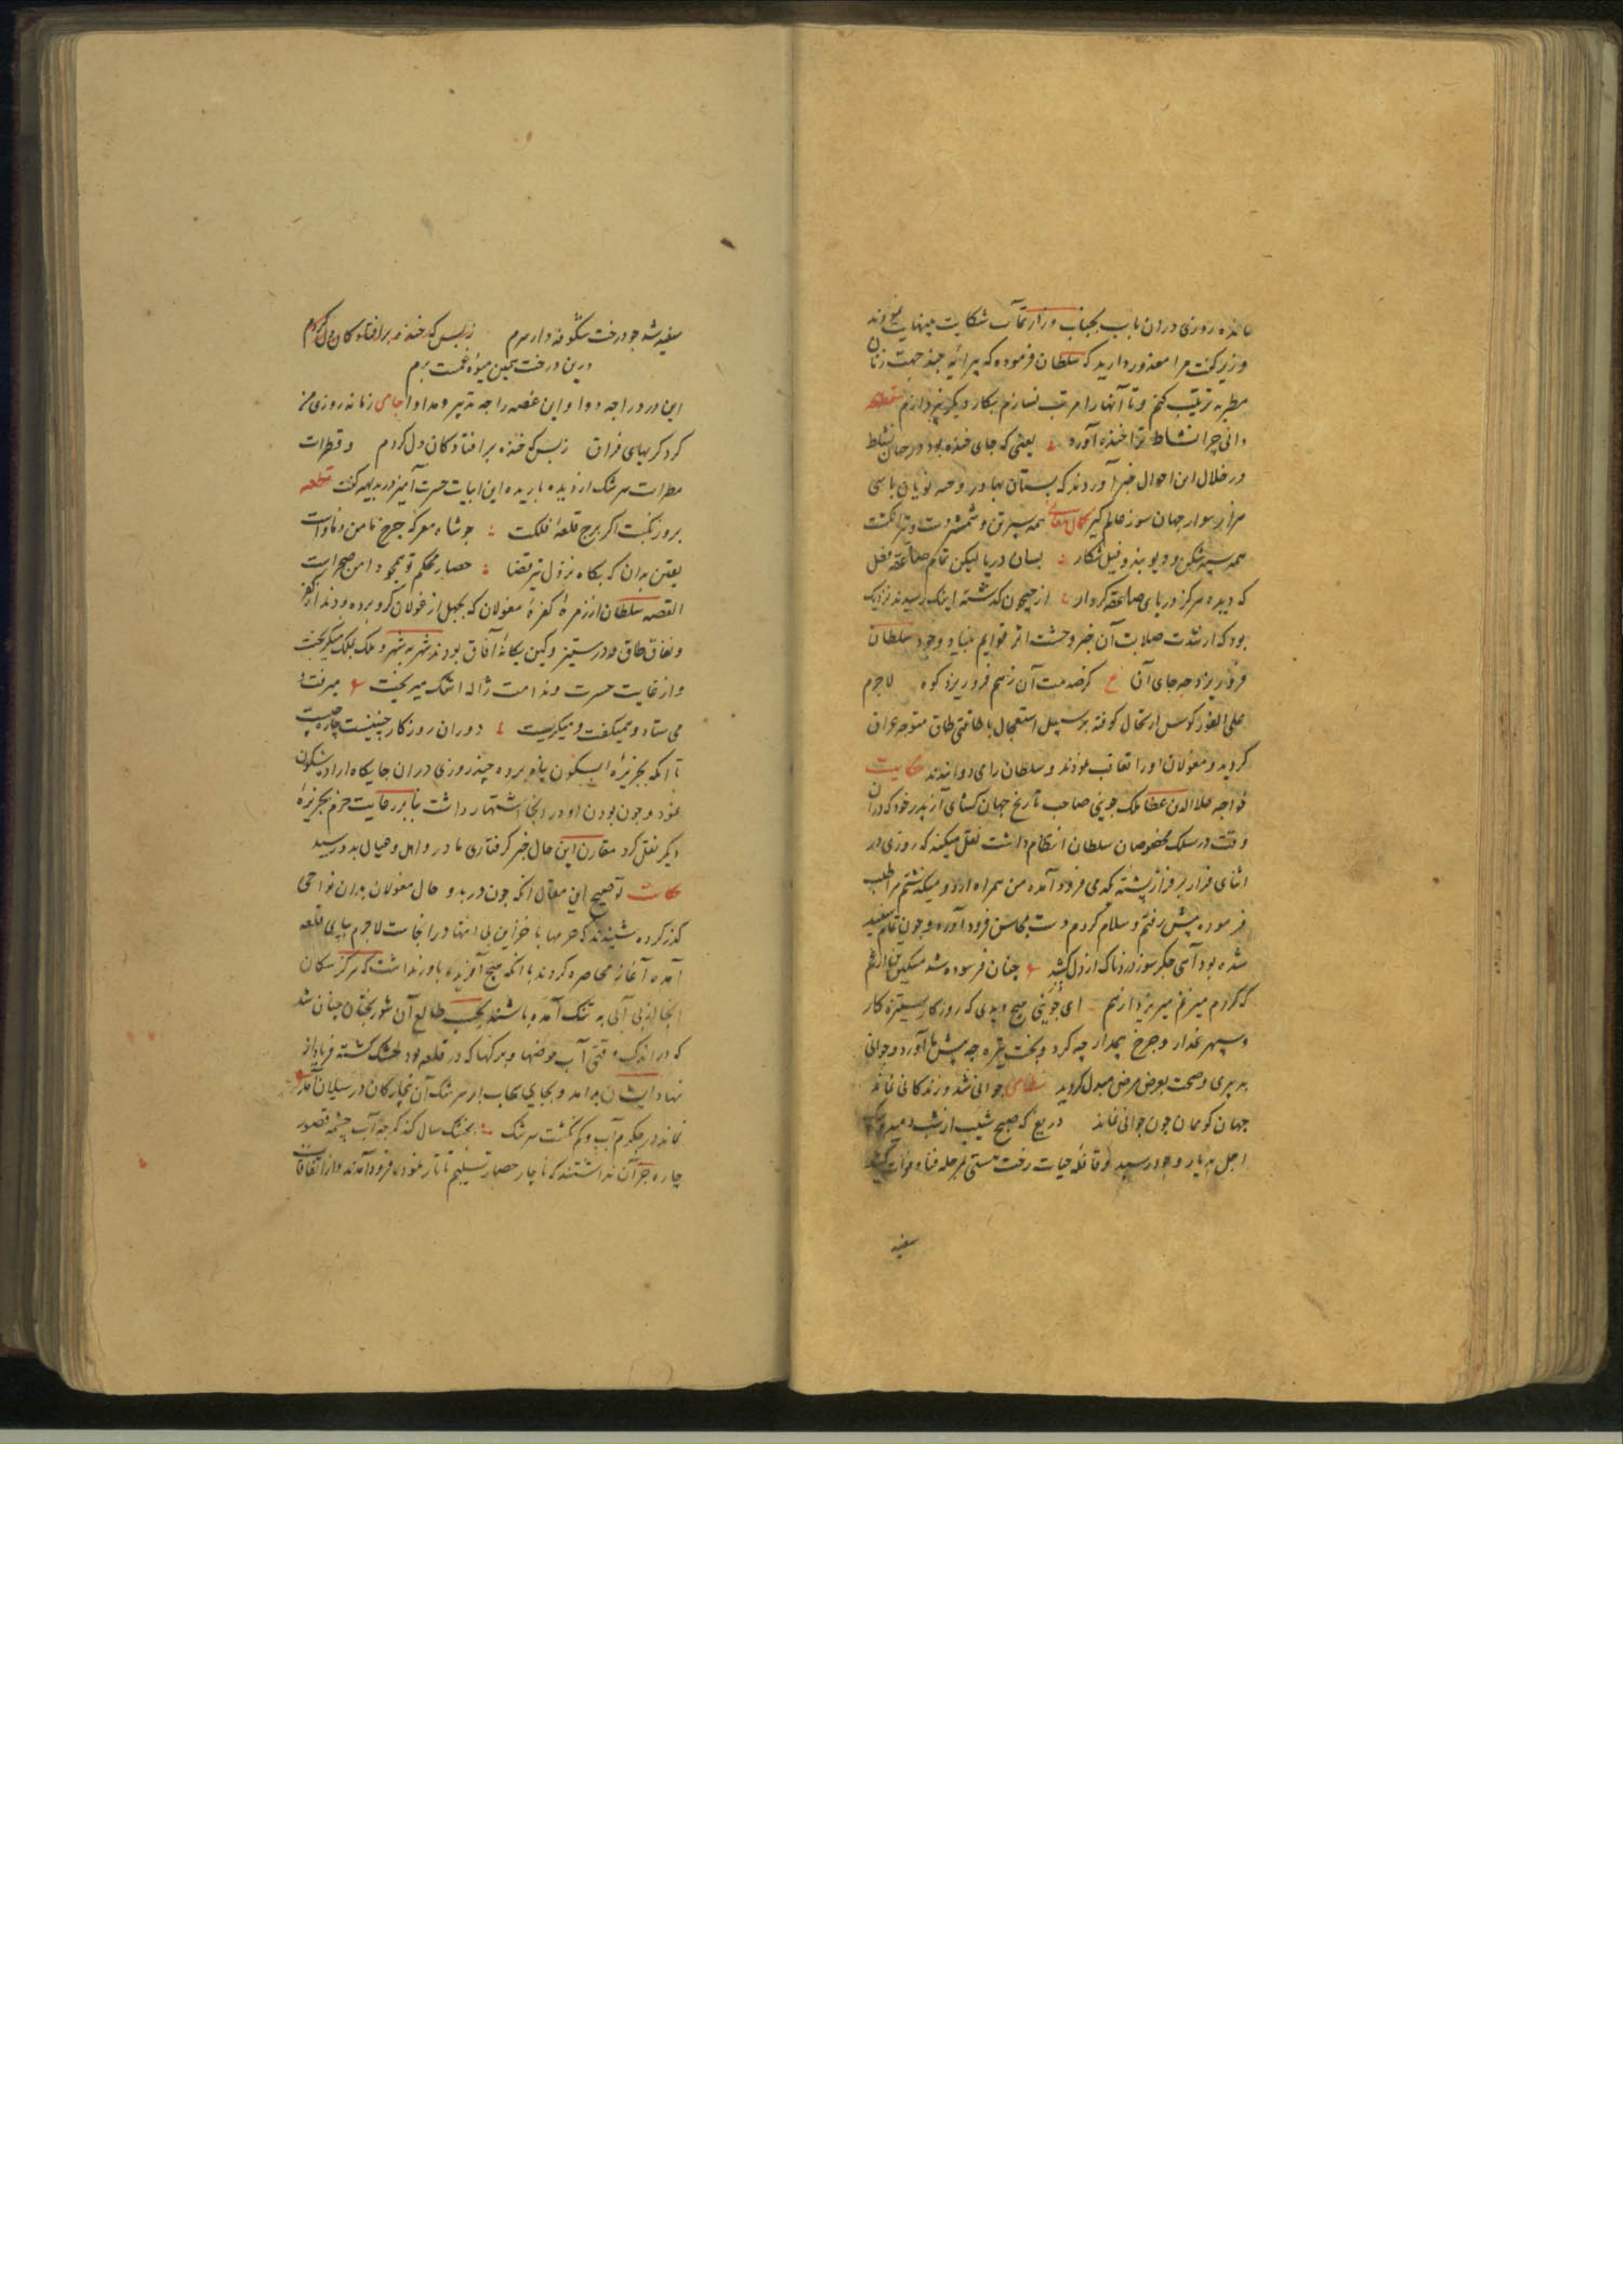 مانده روزی در ان باب بجناب وزارتمآب شکایت مینهایت نمودند
وزیر گفت مرا معذور دارید که سلطان فرموده که پیرایه چند جهت زنان
مطربه ترتیب کنم و تا آنها را مرتب نسازم بکار دیکر نپردازم قطعه
دانی چرا نشاط ترا خنده آورد یعنی که جای خنده بود در جهان نشاط
در خلال این احوال خبر آوردند که بستان بهادر و نویان با سی
هزار سوار جهان سوز عالم کیر همه سپر تن و شمشیر دست و تیر انکشت
همه سپه شکن و دیو بند و فیل شکار بسان دریا لیکن تمام صاعقه فعل
که دیده هرکز دریای صاعقه کردار از جیحون کذشته اینک رسیدند نزدیک
بود که از شدت صلابت آن خبر وحشت اثر قوایم بنیاد وجود سلطان
فرو ریزد چه جای آن ع کز صدمت آن زهم فرو ریزد کوه لاجرم
علی الفور کوس ارتحال کوفته بر سبیل استعجال با طاقتی طاق متوجه عراق
کردید و مغولان او را تعاقب نمودند و سلطان را می دوانیدند حکایت
خواجه علاالدین عطا ملک جوینی صاحب تاریخ جهان کشای از پدر خود که در ان
وقت در سلک مخصوصان سلطان انتظام داشت نقل میکند که روزی در
اثنای فرار بر فراز پشته کهی فرود آمده من همراه اردو میکذشتم مرا طلب
فرموده پیش رفتم و سلام کردم دست بمحاسن فرود آورده و چون تمام سفید
شده بود آهی جکرسوز دردناک از دل کشید چنان فرسوده شد مسکین تن زارم
ای جوینی هیچ دیدی که روزکار ستیزه کار
و سپهر غدار و چرخ بیمدار چه کرد و بخت تیره چه پیش ما آورد و جوانی
به پیری و صحت بعرض مرض مبدل کردید نظامی جوانی شد و زندکانی نماند
جهان کو ممان چون جوانی نماند دریغ که صبح شیب از شب دمید و پیک
اجل به یار وجود رسید و قافله حیات رخت هستی بمرحله فنا و فوات کشید
سفید
سفید شد چو درخت شکوفه دار سرم زبس که خنده بر افتادکان دل کردم
درین درخت همین میوه غمست برم
این درد را چه دوا و این غصه را چه تدبیر و مداوا جامی زمانه روزی من
کرد کریهای فراق زبس که خنده بر افتادکان دل کردم و قطرات
مطرات سرشک از دیده باریده این ابیات حسرت آمیز در بدیهه گفت قطعه
بروز نکبت اکر برج قلعه فلکت چو شاه معرکه چرخ تا من و ماواست
یقین بدان که بکاه نزول تیر قضا حصار محکم تو همچو دامن صحراست
القصه سلطان از زمره کفره مغولان که بجهل از غولان کرو برده بودند از کفر
و نفاق طاق و در ستیز و کین یکانه آفاق بودند شهر به شهر و ملک بملک میکریخت
و از غایت حسرت و ندامت ژاله اشک میریخت میرفت و
می ستاد و میگفت و میکریست دوران روزکار چنینست چاره چیست
تا انکه بجزیره ابسکون پناه برده چند روزی در ان جایکاه آرام
نمود و چون بودن او در انجا اشتهار داشت بنابر رعایت حزم بجزیره
دیکر نقل کرد مقارن این حال خبر کرفتاری مادر و اهل و عیال بدو رسید
حکایت توضیح این مقال انکه چون در بدو حال مغولان بدان نواحی
کذر کرده شنیدند که حرمها با خزاین بی انتها در انجاست لاجرم بپای قلعه
آمده آغاز محاصره کردند با انکه هیچ آفریده باور نداشت که هرکز سکان
انجا از بی آبی به تنک آمده باشند بحسب طالع آن شوربختان چنان شد
که در اندک وقتی آب حوضها و برکها که در قلعه بود خشک کشته فریاد از
نهاد ایشان برامد و بجای سحاب از سرشک آن بیچارکان در سیلان آمد
نماند در جکرم آب و کم نکشت سرشک بخشک سال کند کرچه آب چشمه قصور
چاره جز آن نداشتند که ناچار حصار تسلیم تاتار نموده فرود آمدند و از اتفاقات